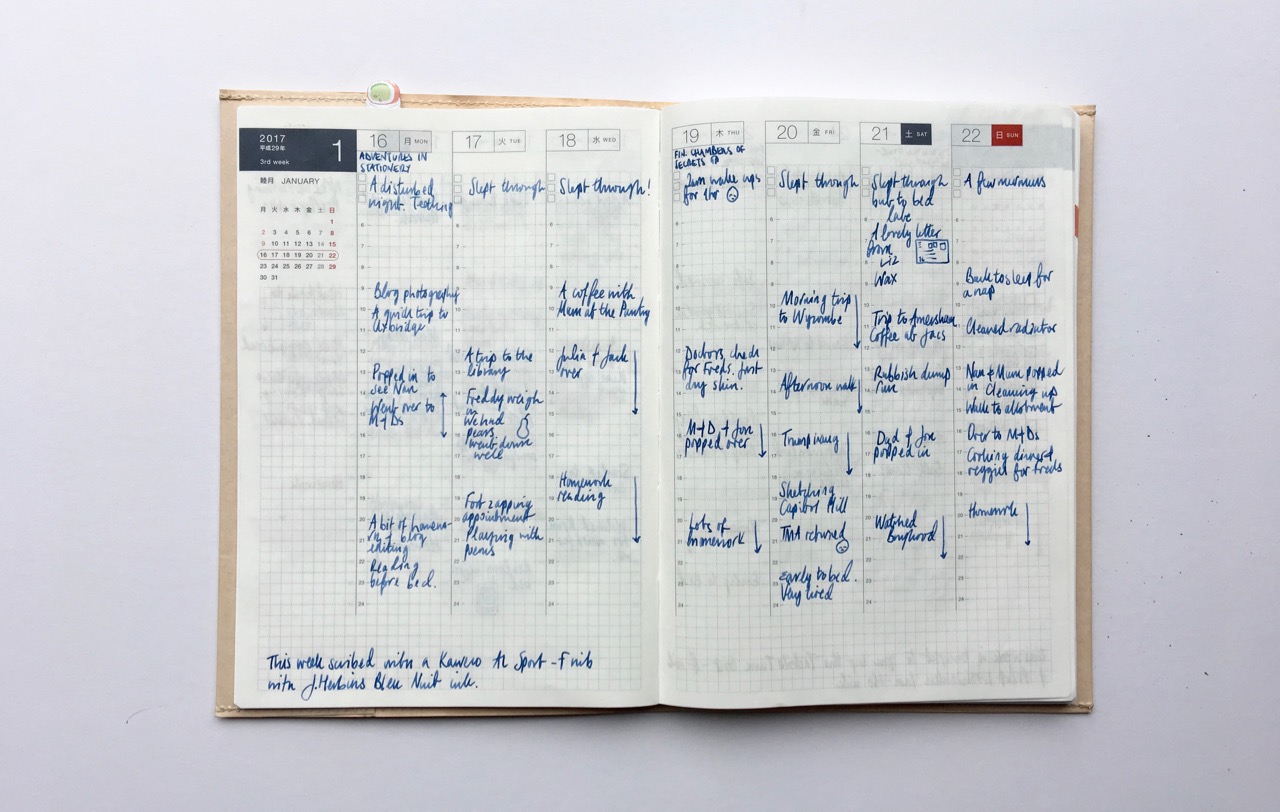 2017
平成29年
3rd week
1
睦月 JANUARY
月 火 水 木 金 土 日
1
2 3 4 5 6 7 8
9 10 11 12 13 14 15
16 17 18 19 20 21 22
23 24 25 26 27 28 29
30 31
16 月 MON
ADVENTURES IN
STATIONERY
A disturbed
night. Teething
Blog photography
A quick trip to
Uxbridge
Popped in to
see Nan
Went over to
M+Ds
A bit of
blog
editing
Reading
before bed.
17 火 TUE
Slept through
A trip to the
library
Freddy weigh
in
We had
pears
went down
well
Foot zapping
appointment
Playing with
poems
18 水 WED
Slept through!
A coffee with
Mum at the Pantry
Julia + Jack
over
Homework
reading
19 木 THU
FIN. CHAMBERS OF
SECRETS
2am wake ups
for 1hr
Doctors check
for Freds. Just
dry skin.
M+D + Jon
popped over
Lots of
homework
20 金 FRI
Slept through
Morning trip
to Wycombe
Afternoon walk
Trump inaug
Sketching
Capitol Hill
TMA returned
Early to bed.
Very tired
21 土 SAT
Slept through
but to bed
late
A lovely letter
from
Liz
Wax
Trip to Amersham
Coffee at Jacs
Rubbish dump
run
Dad + Jon
popped in
Watched
Boyhood
22 日 SUN
A few murmurs
Back to sleep for
a nap
Cleaned radiator
Nan + Mum popped
in Cleaning up
Walk to allotment
Over to M+Ds
Cooking dinner +
veggies for Freds
Homework
This week scribed with a Kaweco AL Sport - F nib
with J. Herbins Bleu Nuit ink.